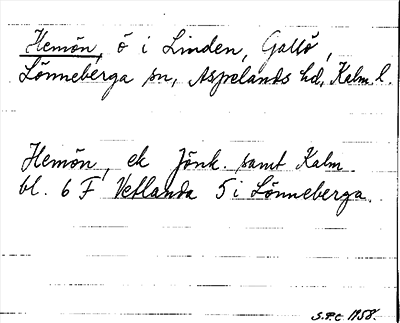 Hemön, ö i Linden, Gallö,
Lönneberga sn, Aspelands hd, Kalm l.
Hemön, ek Jönk. samt Kalm
bl. 6 F Vetlanda 5 i Lönneberga.
S.P.C. 1958.